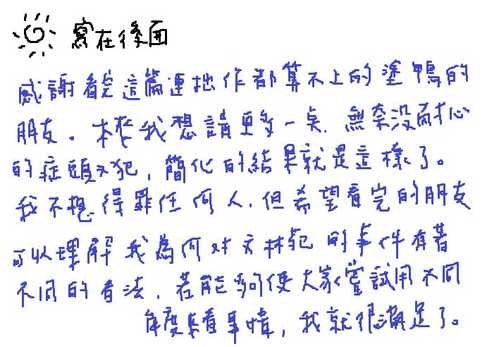 寫在後面
感謝看完這篇連拙作都算不上的塗鴨的
朋友。本來我想講更多一點,無奈沒耐心
的症頭又犯,簡化的結果就是這樣了。
我不想得罪任何人,但希望看完的朋友
可以理解我為何對文林苑的事件有著
不同的看法,若能夠使大家嘗試用不同
角度來看事情,我就很滿足了。